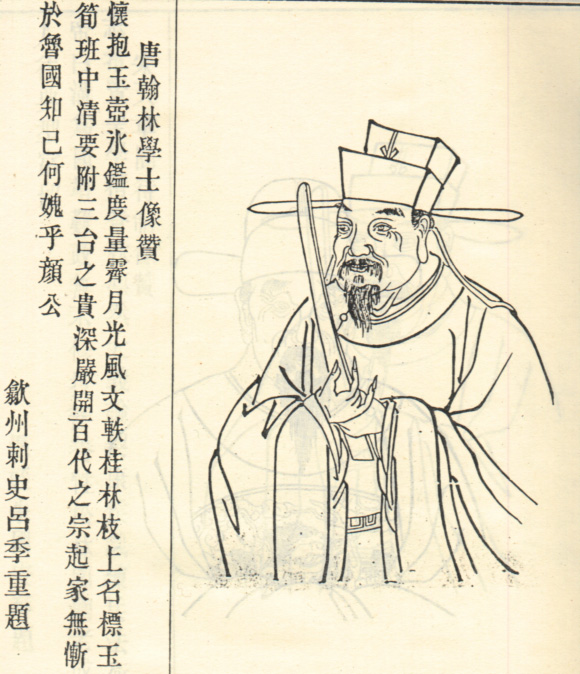 唐翰林學士像贊
懷抱玉壺氷鑑度量霽月光風文軼桂林枝上名標玉
筍班中清要附三台之貴深嚴開百代之宗起家無慚
於魯國知己何媿乎顔公
歙州刺史呂季重題